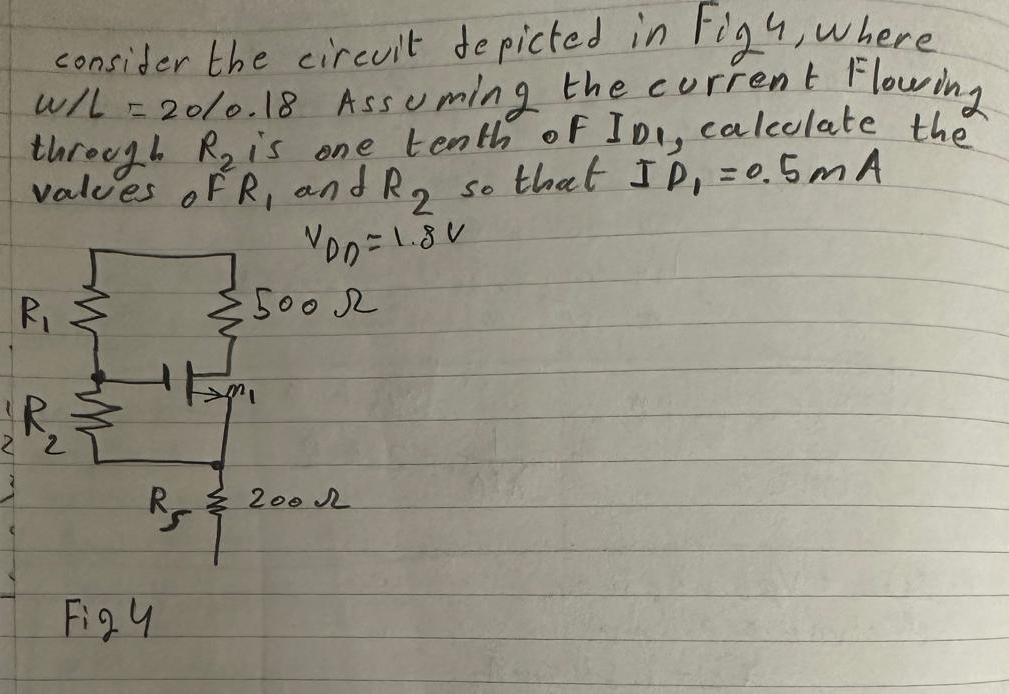 consider the circuit depicted in Fig 4, where
W/L = 20/0.18 Assuming the current Flowing
through R2 is one tenth of ID1, calculate the
values of R1 and R2 so that ID1 = 0.5mA
VDD = 1.8 V
R1
500 Ω
m1
R2
RS
200 Ω
Fig 4